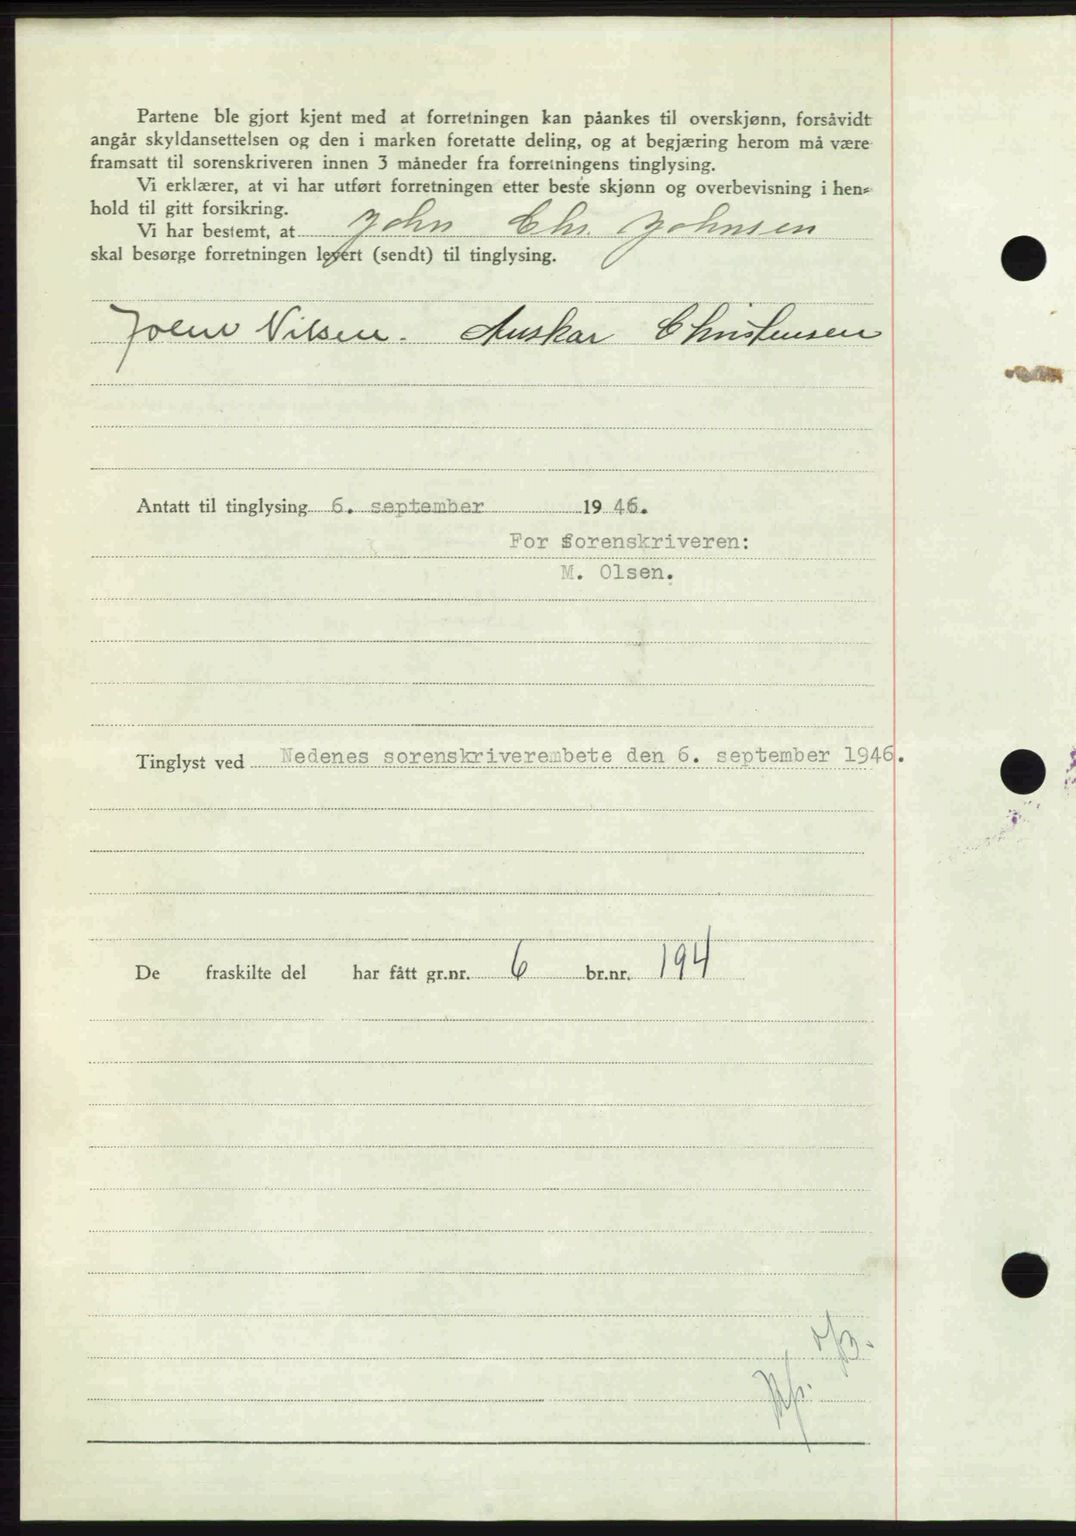 Partene ble gjort kjent med at forretningen kan påankes til overskjønn, forsåvidt
angår skyldansettelsen og den i marken foretatte deling, og at begjæring herom må være
framsatt til sorenskriveren innen 3 måneder fra forretningens tinglysing.
Vi erklærer, at vi har utført forretningen etter beste skjønn og overbevisning i hen=
hold til gitt forsikring.
Vi har bestemt, at John Chr. Johnsen
skal besørge forretningen levert (sendt) til tinglysing.
Nilsen. Anskar Christensen
Antatt til tinglysing 6. september 19 46.
For sorenskriveren:
M. Olsen.
Tinglyst ved Nedenes sorenskriverembete den 6. september 1946.
De fraskilte del har fått gr.nr. 6 br.nr. 194